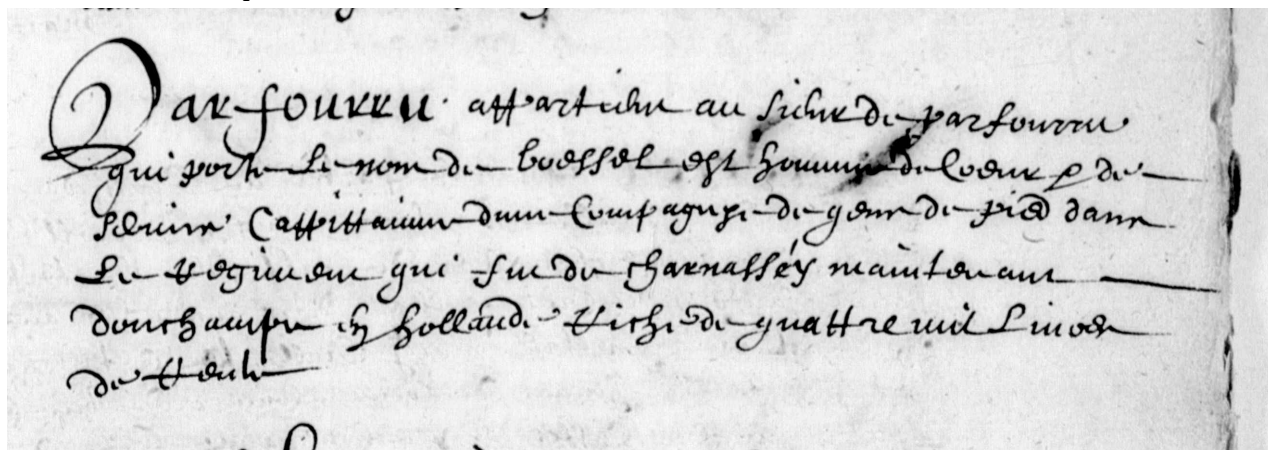 Parfourru. appartient au sieur de parfourru
qui porte le nom de boessel est homme de Coeur & de
service Cappittainne dune Compagnye de gens de pied dans
Le Regiment qui fut de charnasséy maintenant
douchampt en hollande Riche de quattre mil Livres
de Rente